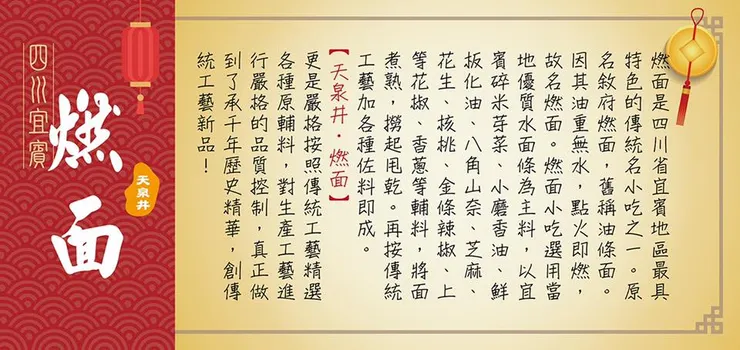 燃面是四川省宜賓地區最具
特色的傳統名小吃之一。原
名敘府燃面，舊稱油條面。
因其油重無水，點火即燃，
故名燃面。燃面小吃選用當
地優質水面條為主料，以宜
賓碎米芽菜、小磨香油、鮮
板化油、八角山奈、芝麻、
花生、核桃、金條辣椒、上
等花椒、香蔥等輔料，將面
煮熟，撈起甩乾。再按傳統
工藝加各種佐料即成。
【天泉井·燃面】
更是嚴格按照傳統工藝精選
各種原輔料，對生產工藝進
行嚴格的品質控制，真正做
到了承千年歷史精華，創傳
統工藝新品！
天泉井
燃面
四川宜賓